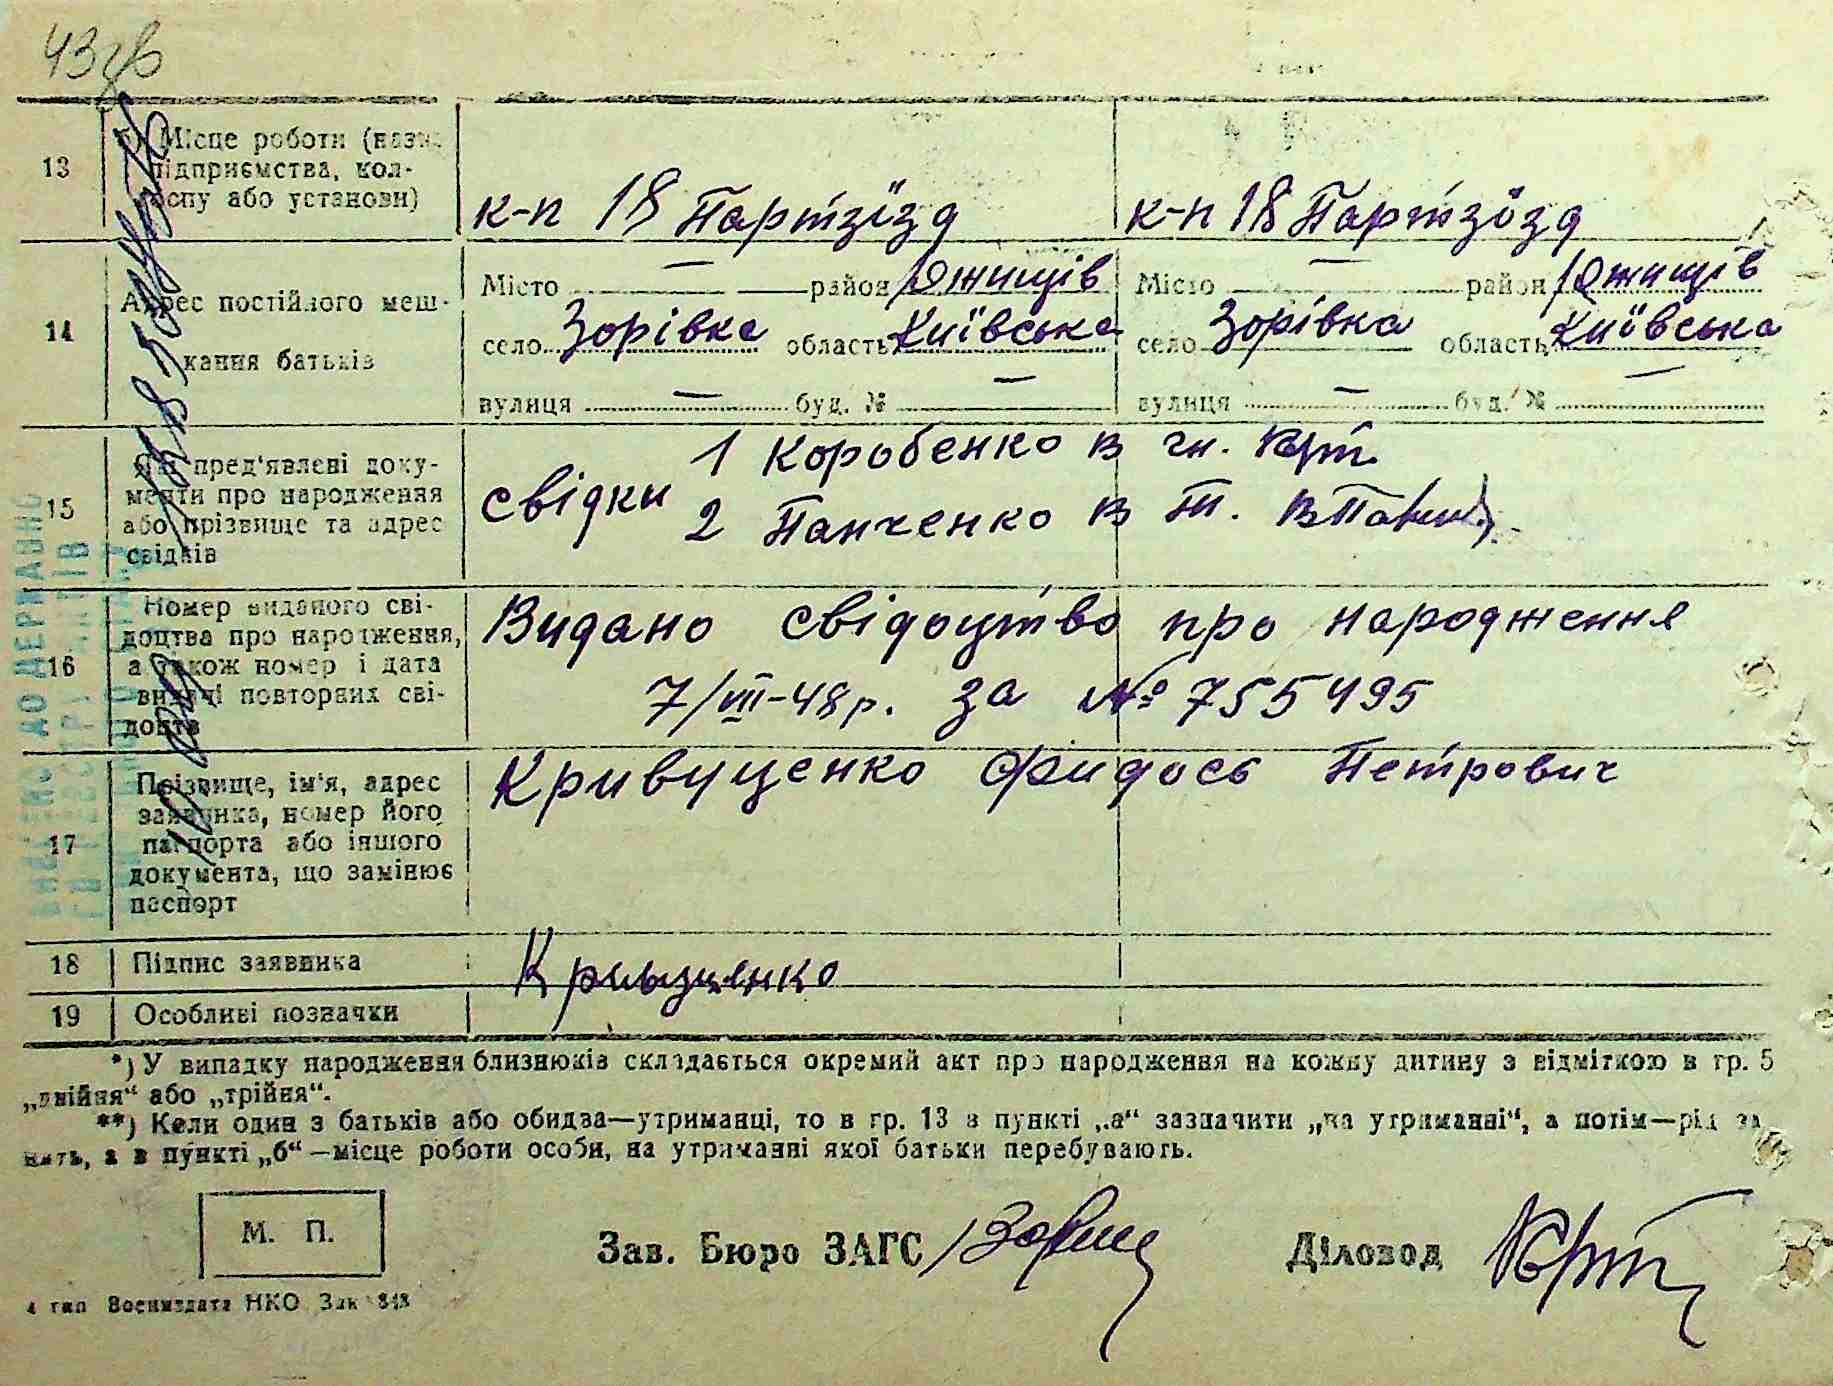 43зв
13
б) Місце роботи (назва
підприємства, кол-
госпу або установи)
к-п 18 Партзїзд
к-п 18 Партзїзд
14
Адрес постійного меш-
кання батьків
Місто — район
село Зорівка область Київська
вулиця — буд. № —
Місто — район
село Зорівка область Київська
вулиця — буд. № —
15
Які пред'явлені доку-
менти про народження
або прізвище та адрес
свідків
свідки 1 Коробенко В
2 Панченко В
16
Номер виданого сві-
доцтва про народження,
а також номер і дата
видачі повторних сві-
доцтв
Видано свідоцтво про народження
7/VIII-48р. за № 755495
17
Прізвище, ім'я, адрес
заявника, номер його
паспорта або іншого
документа, що замінює
паспорт
Кривущенко Фидось Петрович
18
Підпис заявника
Кривущенко
19
Особливі позначки
*) У випадку народження близнюків складається окремий акт про народження на кожну дитину з відміткою в гр. 5
„двійня“ або „трійня“.
**) Коли один з батьків або обидва—утриманці, то в гр. 13 в пункті „а“ зазначити „на утриманні“, а потім—рід за
нять, а в пункті „б“—місце роботи особи, на утриманні якої батьки перебувають.
М. П.
Зав. Бюро ЗАГС
Діловод
4 тип Воениздата НКО Зак 848